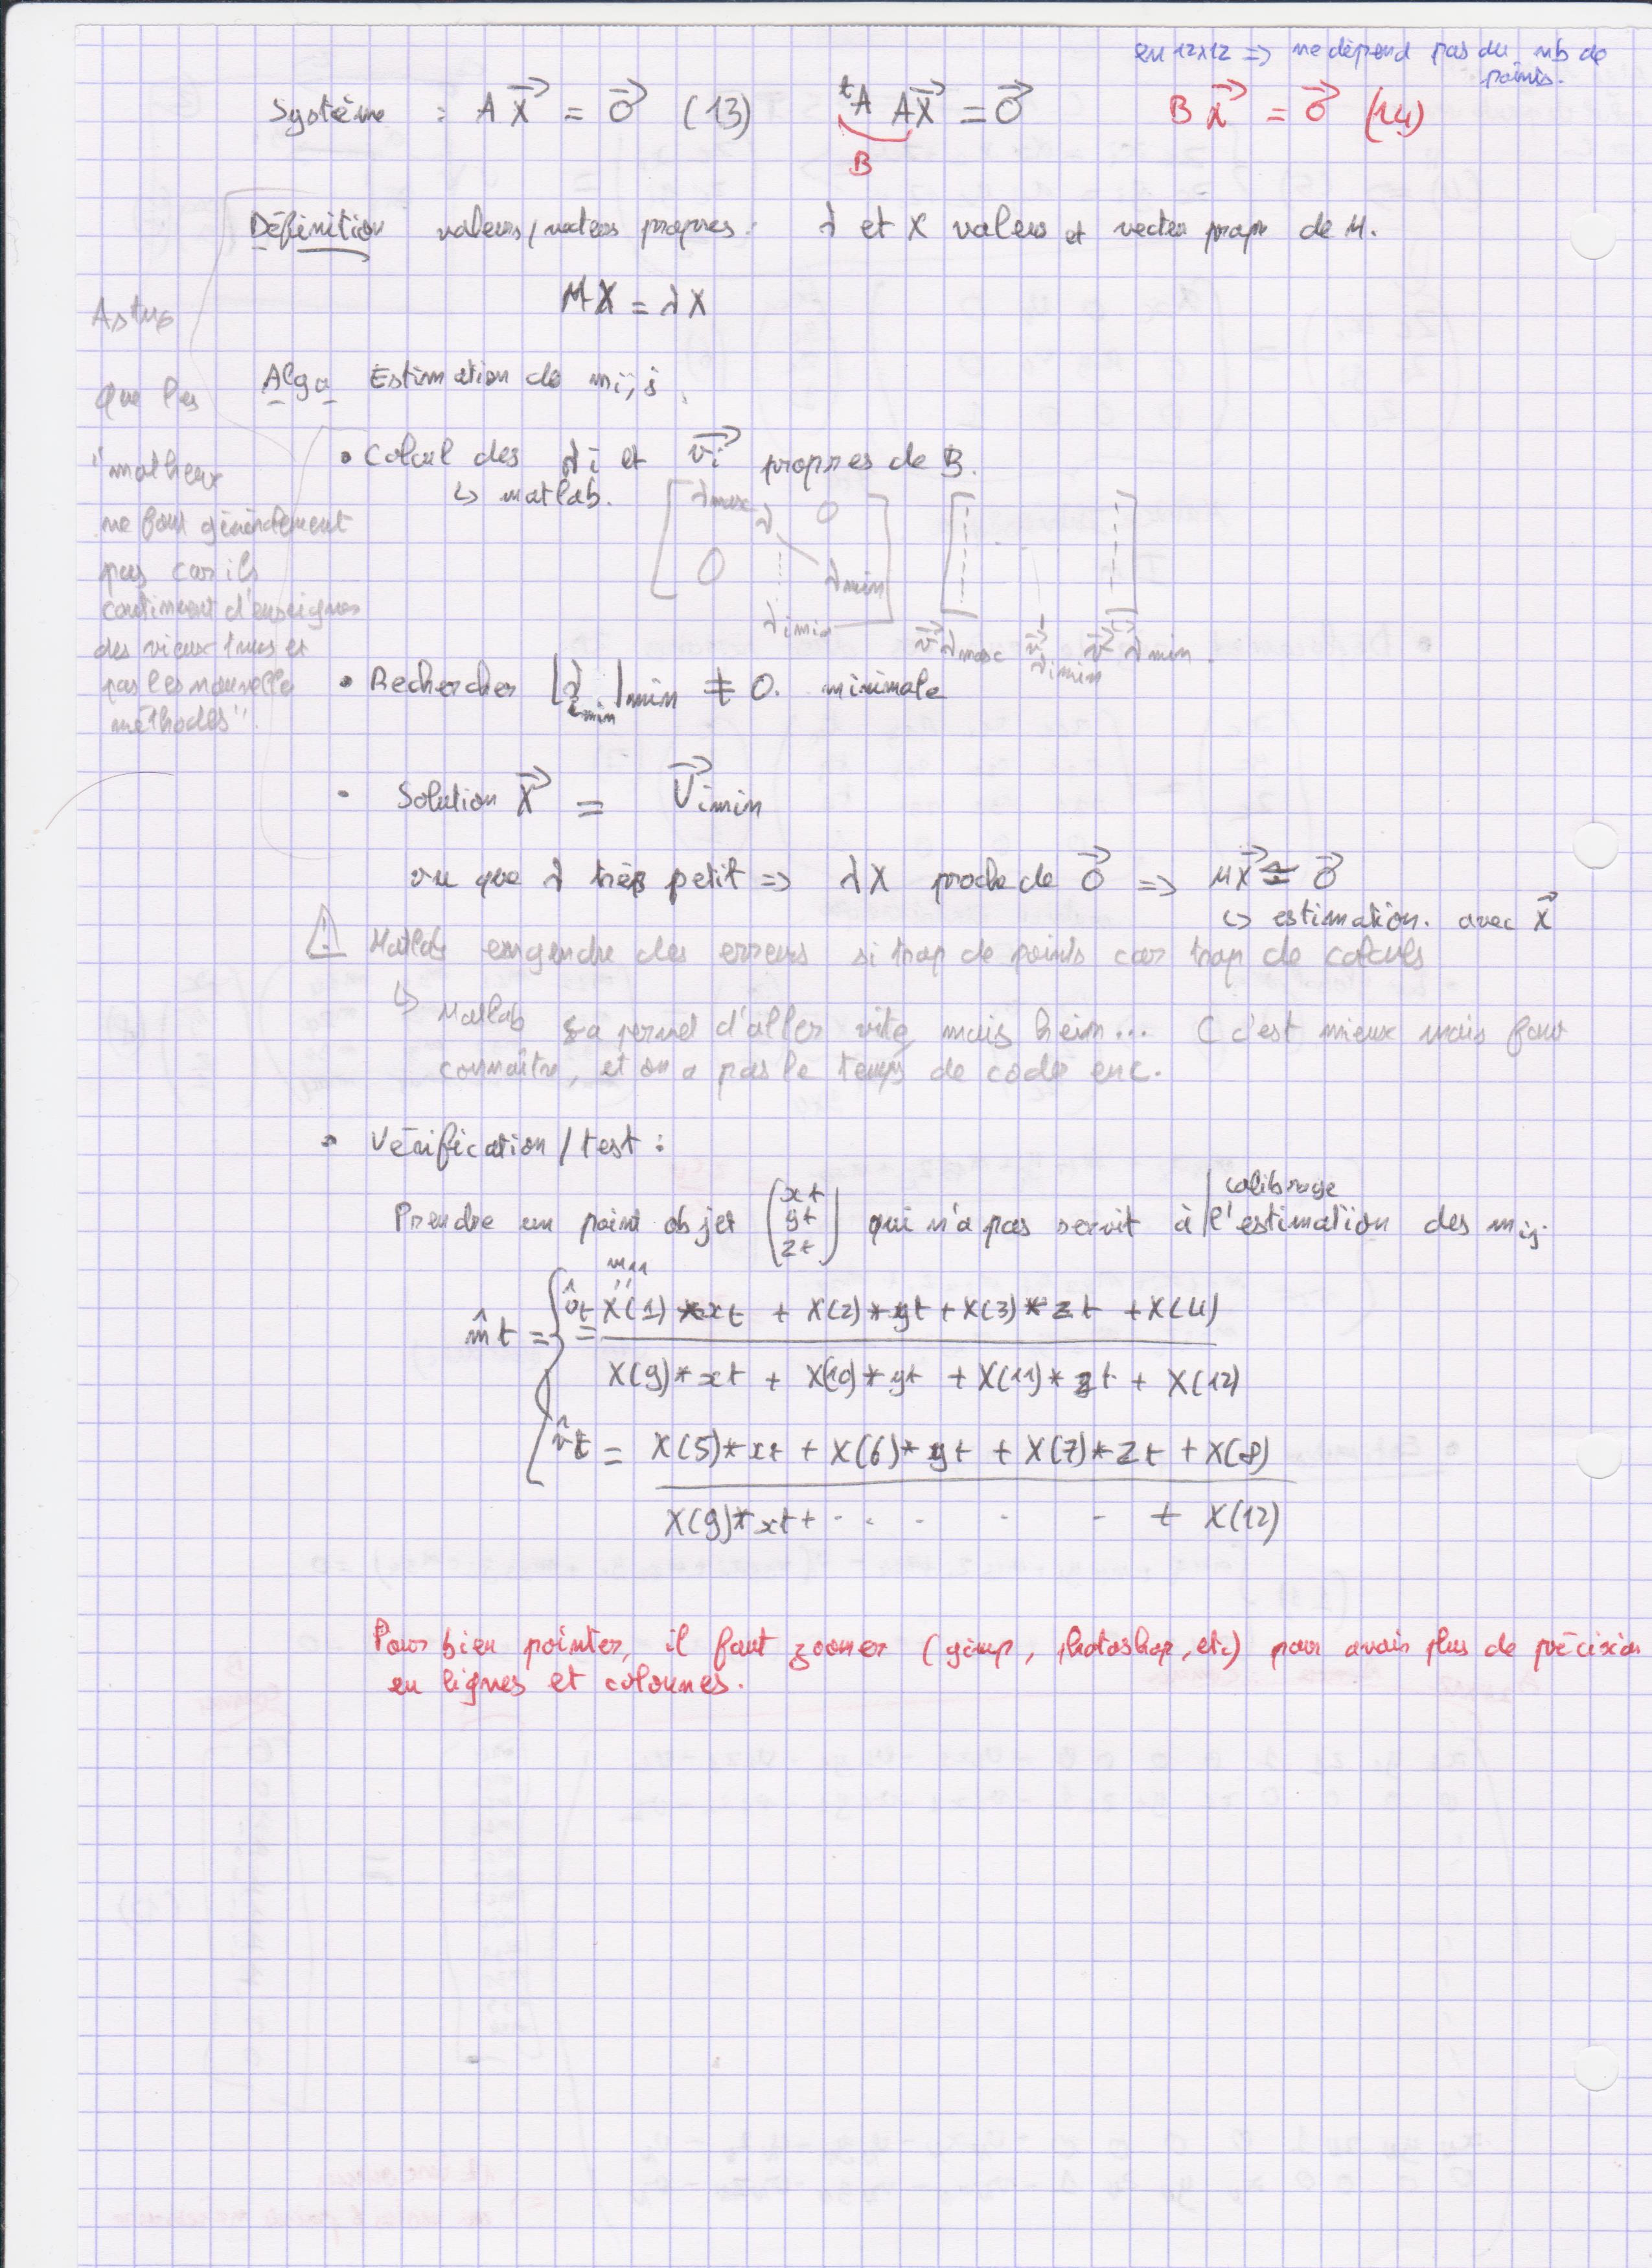 en 12x12 => ne dépend pas du nb de
points.
Système : A X⃗ = 0⃗ (13) ᵗA AX⃗ = 0⃗ B X⃗ = 0⃗ (14)
B
Définition valeurs/vecteurs propres : λ et X valeur et vecteur propre de M.
MX = λX
Astuce
que les
"matheux
ne font généralement
pas car ils
continuent d'enseigner
des vieux trucs et
pas les nouvelles
méthodes".
Algo Estimation de mi,j
• Calcul des λi et vi⃗ propres de B.
↳ matlab.
λmax λ 0
0 λmin
λimin
v⃗λmax v⃗λimin v⃗λmin.
• Rechercher |λimin|min ≠ 0. minimale
• Solution X⃗ = V⃗imin
vu que λ très petit => λX proche de 0⃗ => MX⃗ ≅ 0⃗
↳ estimation. avec X⃗
⚠ Matlab engendre des erreurs si trop de points car trop de calculs
↳ Matlab ça permet d'aller vite, mais hein... C c'est mieux mais faut
connaître, et on a pas le temps de coder enc.
• Vérification/test :
calibrage
Prendre un point objet (xt yt zt) qui n'a pas servit à l'estimation des mij.
m11
m̂t = { ût = X(1)*xt + X(2)*yt + X(3)*zt + X(4)
X(9)*xt + X(10)*yt + X(11)*zt + X(12)
v̂t = X(5)*xt + X(6)*yt + X(7)*zt + X(8)
X(9)*xt + . . . . . + X(12)
Pour bien pointer, il faut zoomer (gimp, photoshop, etc) pour avoir plus de précision
en lignes et colonnes.